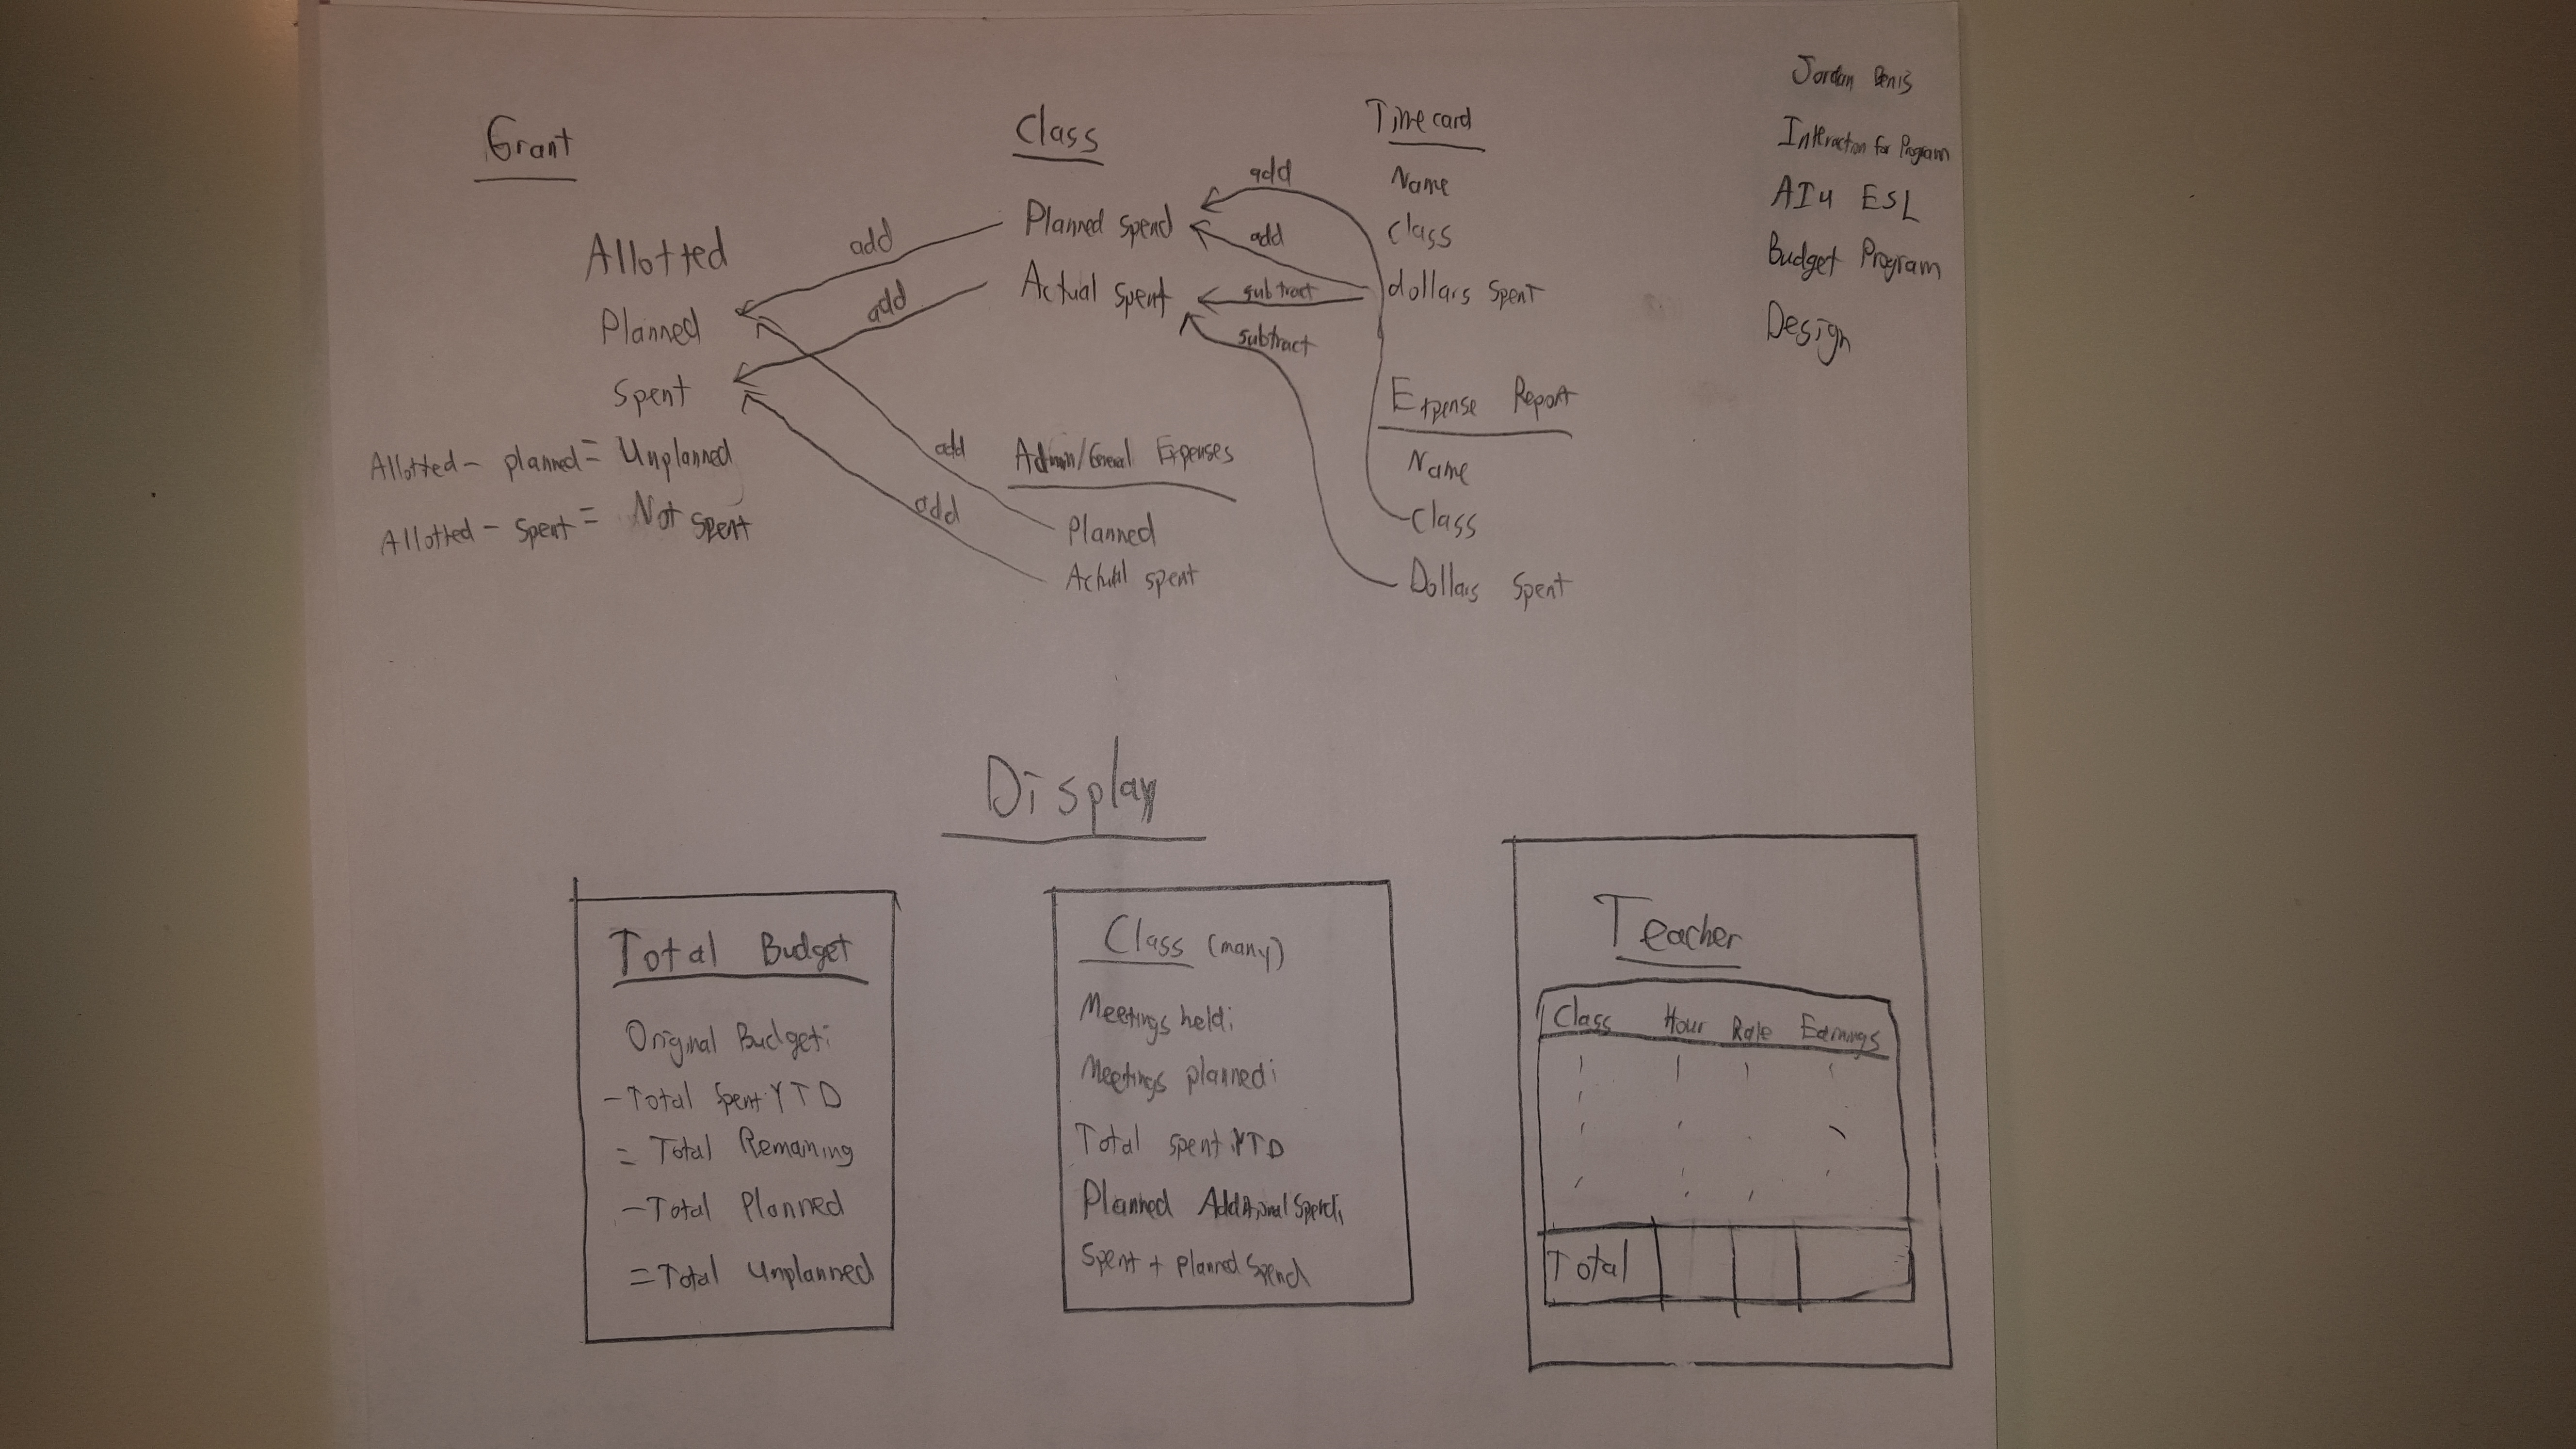 Jordan Denis
Interaction for Program
AIU ESL
Budget Program
Design
Grant
Allotted
Planned
Spent
Allotted - planned = Unplanned
Allotted - Spent = Not spent
add
add
add
add
Class
Planned Spend
Actual Spent
Admin/General Expenses
Planned
Actual spent
add
add
subtract
subtract
Time card
Name
Class
dollars spent
Expense Report
Name
Class
Dollars Spent
Display
Total Budget
Original Budget:
- Total Spent YTD
= Total Remaining
- Total Planned
= Total Unplanned
Class (many)
Meetings held:
Meetings planned:
Total spent YTD
Planned Additional Spend:
Spent + planned Spend
Teacher
Class Hour Rate Earnings
Total